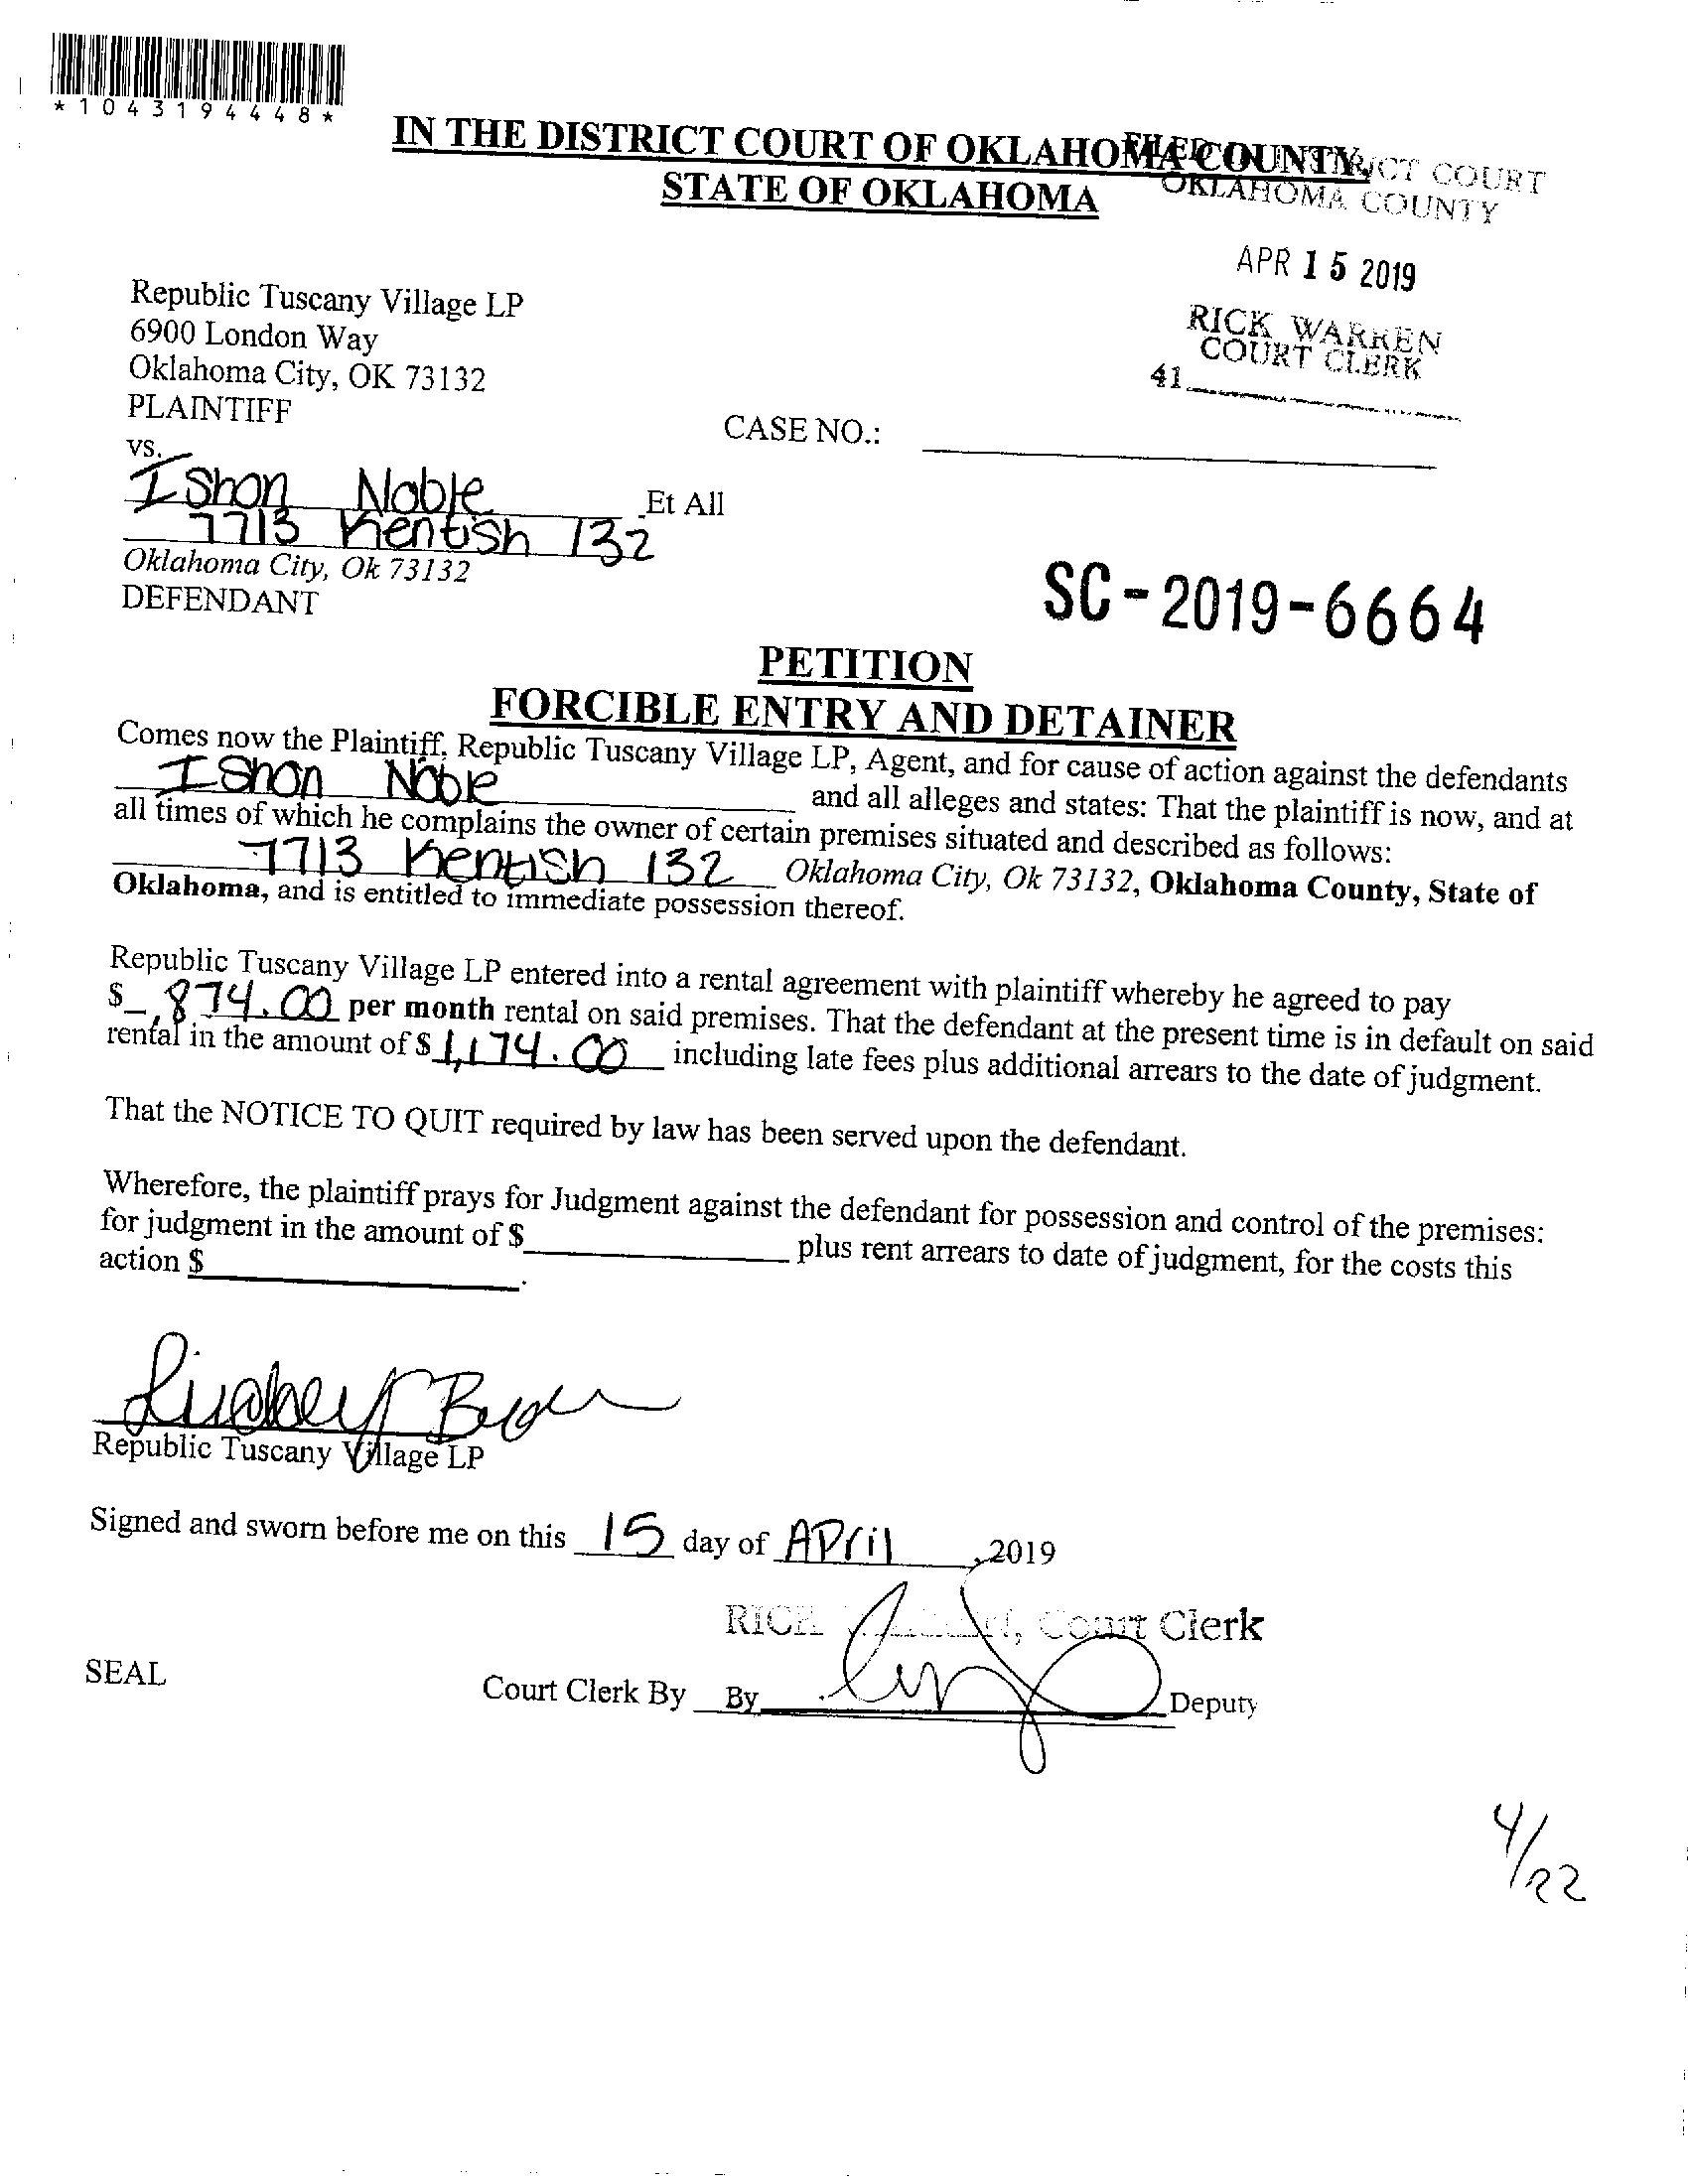 *1043194448*
IN THE DISTRICT COURT OF OKLAHOMA COUNTY,
STATE OF OKLAHOMA
FILED IN DISTRICT COURT
OKLAHOMA COUNTY
APR 15 2019
RICK WARREN
COURT CLERK
41
Republic Tuscany Village LP
6900 London Way
Oklahoma City, OK 73132
PLAINTIFF
CASE NO.:
vs.
Ishon Noble Et All
7713 Kentish 132
Oklahoma City, Ok 73132
DEFENDANT
SC-2019-6664
PETITION
FORCIBLE ENTRY AND DETAINER
Comes now the Plaintiff, Republic Tuscany Village LP, Agent, and for cause of action against the defendants
Ishon Noble and all alleges and states: That the plaintiff is now, and at
all times of which he complains the owner of certain premises situated and described as follows:
7713 Kentish 132 Oklahoma City, Ok 73132, Oklahoma County, State of
Oklahoma, and is entitled to immediate possession thereof.
Republic Tuscany Village LP entered into a rental agreement with plaintiff whereby he agreed to pay
$ 874.00 per month rental on said premises. That the defendant at the present time is in default on said
rental in the amount of $ 1,174.00 including late fees plus additional arrears to the date of judgment.
That the NOTICE TO QUIT required by law has been served upon the defendant.
Wherefore, the plaintiff prays for Judgment against the defendant for possession and control of the premises:
for judgment in the amount of $ plus rent arrears to date of judgment, for the costs this
action $ .
Republic Tuscany Village LP
Signed and sworn before me on this 15 day of April, 2019
RICK Court Clerk
SEAL
Court Clerk By By Deputy
4/22